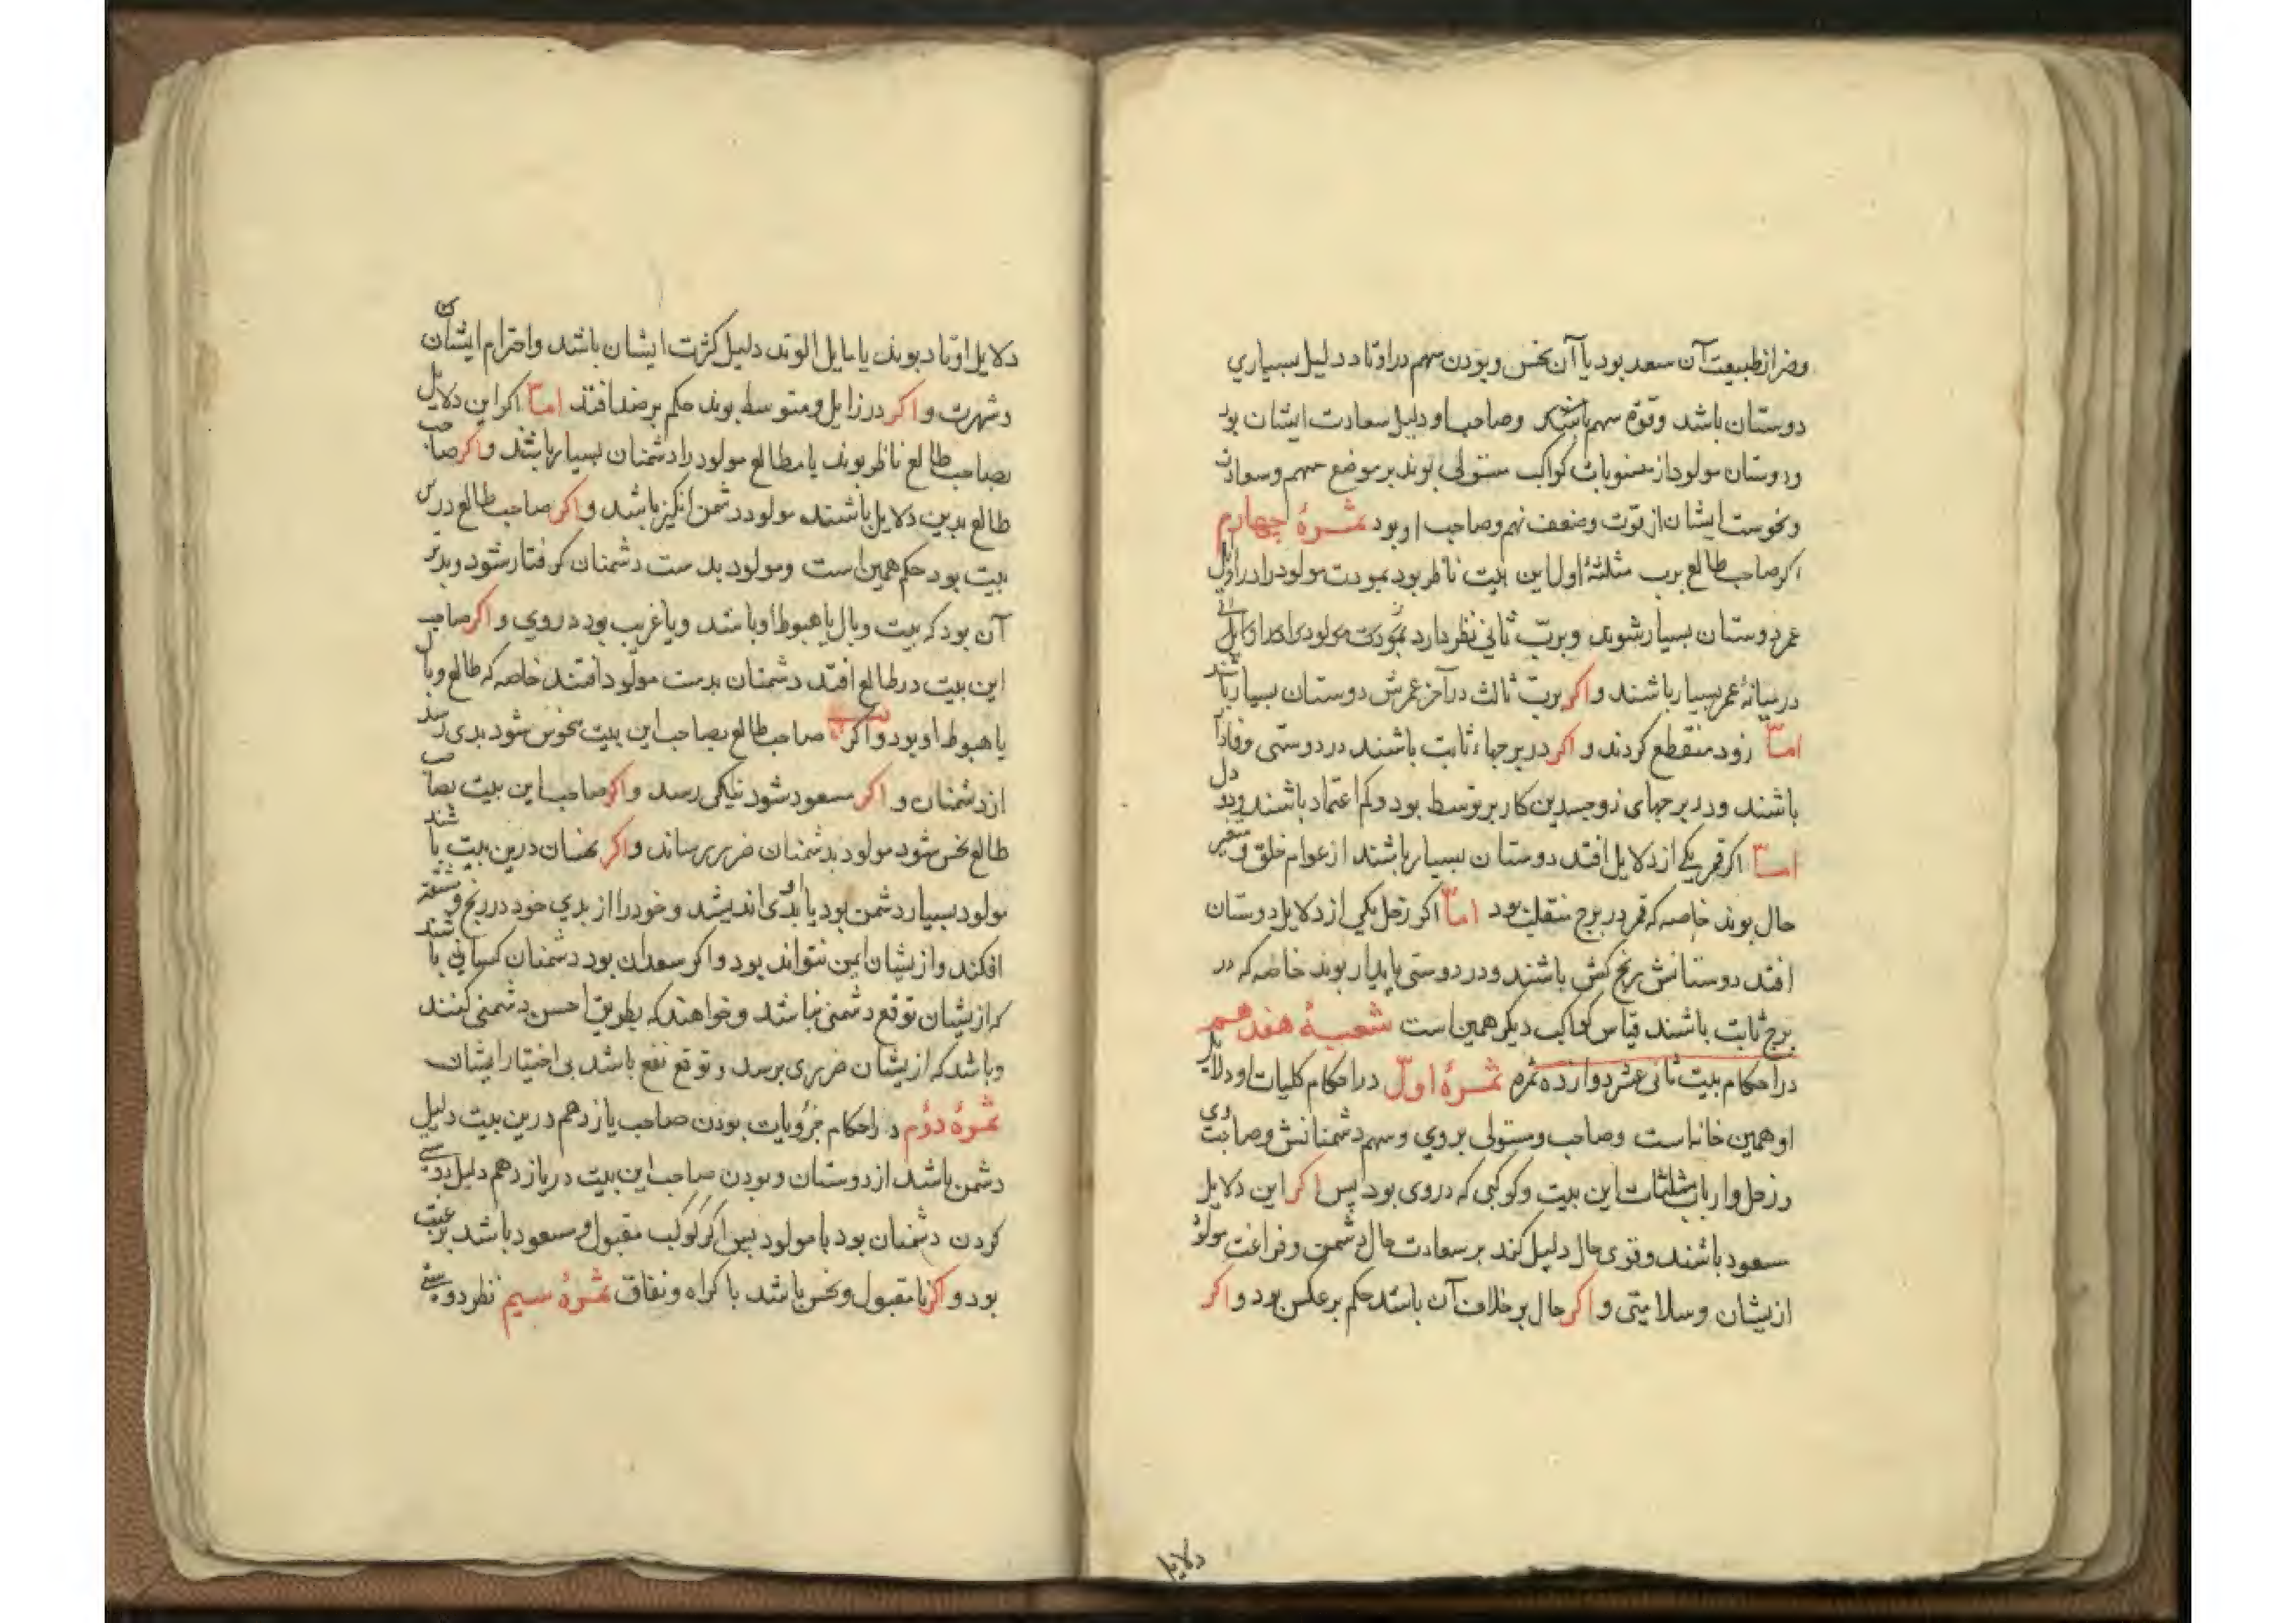 وضر از طبیعت آن سعد بود یا آن نحس و بودن سهم در اوتاد دلیل بسیاری
دوستان باشد وقوّة سهم باشد وصاحب او دلیل سعادت ایشان بود
ودوستان مولود از منسوبات کواکب مستولی بوند بر موضع سهم وسعادت
ونحوست ایشان از قوّت وضعف نهم وصاحب او بود ثمرهٔ چهارم
اکر صاحب طالع برب مثلثهٔ اول این بیت ناظر بود بمودت مولود را در اوّل
عمر دوستان بسیار شوند وبربّ ثانی نظر دارد بمودت مولود را
در میانهٔ عمر بسیار باشند واکر بربّ ثالث در آخر عمرش دوستان بسیار باشند
امّا زود منقطع کردند واکر در برجهاء ثابت باشند در دوستی وفادار
باشند ودر برجهای ذوجسدین کار بر توسط بود وکم اعتماد باشند ودو دل
امّا اکر قمر یکی از دلایل افتد دوستان بسیار باشند از عوام خلق ومتغیر
حال بوند خاصه که قمر در برج منقلب بود امّا اکر زحل یکی از دلایل دوستان
افتد دوستانش رنج کش باشند ودر دوستی پایدار بوند خاصه که در
برج ثابت باشند قیاس کواکب دیکر همین است شعبهٔ هفدهم
در احکام بیت ثانی عشر دوازده ثمره ثمرهٔ اوّل در احکام کلیات ودلایل
او همین خانه است وصاحب ومستولی بروی وسهم دشمنانش وصاحب وی
وزحل وارباب مثلثات این بیت وکوکبی که دروی بود پس اکر این دلایل
مسعود باشند وقوی حال دلیل کند بر سعادت حال دشمن وفراغت مولود
ازیشان وسلامتی واکر حال بر خلاف آن باشد حکم بر عکس بود واکر
دلایل
دلایل اوتاد بوند یا مایل الوتد دلیل کثرت ایشان باشد واحترام ایشان
وشهرت واکر در زایل ومتوسط بوند حکم بر ضد افتد امّا اکر این دلایل
بصاحب طالع ناظر بوند یا بطالع مولود را دشمنان بسیار باشند واکر صاحب
طالع بدین دلایل باشند مولود دشمن انکیز باشد واکر صاحب طالع درین
بیت بود حکم همین است ومولود بدست دشمنان کرفتار شود وبدتر
آن بود که بیت وبال یا هبوط او باشد ویا غریب بود دروی واکر صاحب
این بیت در طالع افتد دشمنان بدست مولود افتند خاصه که طالع وبال
یا هبوط او بود واکر صاحب طالع بصاحب این بیت منحوس شود بدی رسد
از دشمنان واکر مسعود شود نیکی رسد واکر صاحب این بیت بصاحب
طالع نحس شود مولود بدشمنان ضرر برساند واکر نحسان درین بیت باشند
مولود بسیار دشمن بود یا بدی اندیشد وخود را از بدی خود در رنج ومشقّت
افکند وازیشان ایمن نتواند بود واکر سعدان بود دشمنان کسانی باشند
که ازیشان توقع دشمنی نباشد وخواهند که بطریق احسن دشمنی کنند
وباشد که ازیشان ضرری برسد وتوقع نفع باشد بی اختیار ایشان
ثمرهٔ دوم در احکام جزویات بودن صاحب یازدهم درین بیت دلیل
دشمن باشد از دوستان وبودن صاحب این بیت در یازدهم دلیل دوستی
کردن دشمنان بود با مولود پس اکر کوکب مقبول ومسعود باشد برغبت
بود واکر نامقبول ونحس باشد باکراه ونفاق ثمرهٔ سیم نظر دوستی